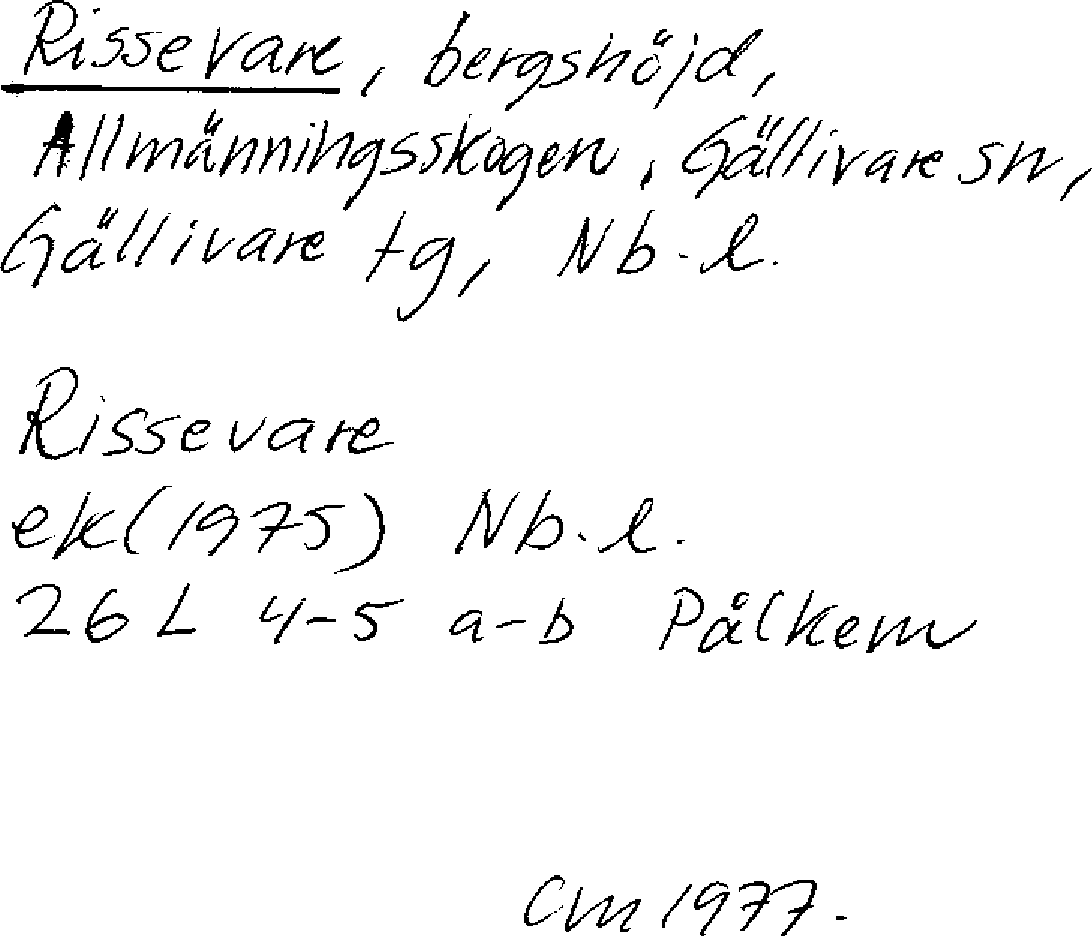 Rissevare, bergshöjd,
Allmänningsskogen, Gällivare sn,
Gällivare tg, Nb.l.
Rissevare
ek(1975) Nb.l.
26 L 4-5 a-b Pålkem
Cm 1977.